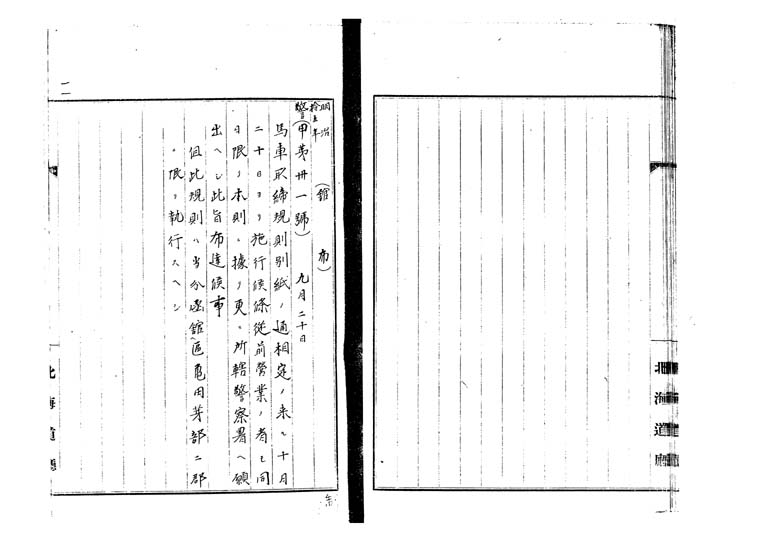 北海道廳
明治
拾五年
(館布)
警(甲第卅一號) 九月二十日
馬車取締規則別紙ノ通相定メ来ル十月
二十日ヨリ施行候條従前営業ノ者モ同
日限リ本則ニ據リ更ニ所轄警察署ヘ願
出ヘシ此旨布達候事
但此規則ハ当分函館區亀田茅部二郡
ニ限リ執行スヘシ
二
北海道廳